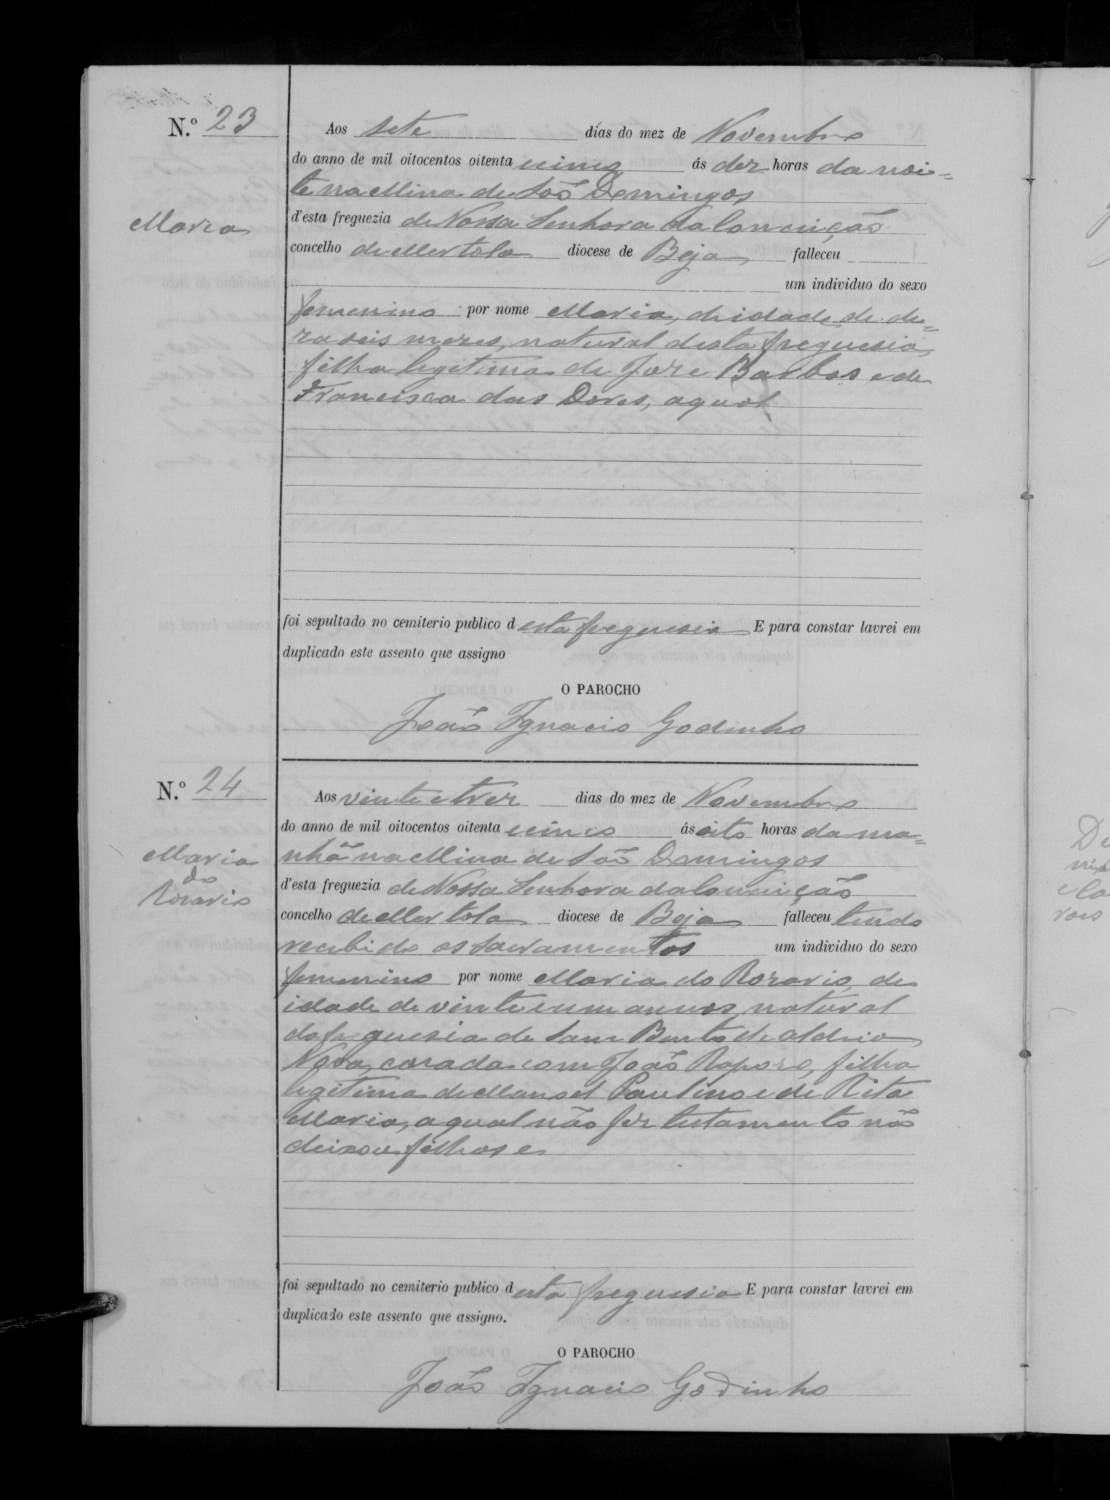 N.º 23
Maria
Aos sete dias do mez de Novembro
do anno de mil oitocentos oitenta e cinco ás dez horas da noi=
te na Mina de São Domingos
d'esta freguezia de Nossa Senhora da Conceição
concelho de Mertola diocese de Beja falleceu
um individuo do sexo
femenino por nome Maria, de idade de de=
zaseis mezes, natural desta freguesia,
filha legitima de José Barbos e de
Francisca das Dores, a qual
foi sepultado no cemiterio publico d esta freguesia E para constar lavrei em
duplicado este assento que assigno
O PAROCHO
João Ignacio Godinho
N.º 24
Maria
do
Rosario
Aos vinte e trez dias do mez de Novembro
do anno de mil oitocentos oitenta e cinco ás oito horas da ma=
nhã na Mina de São Domingos
d'esta freguezia de Nossa Senhora da Conceição
concelho de Mertola diocese de Beja falleceu tendo
recebido os sacramentos um individuo do sexo
femenino por nome Maria do Rozario, de
idade de vinte e um annos, natural
da freguesia de Sam Bento de Aldeia
Nova, casada com João Rapozo, filha
legitima de Manoel Paulino e de Rita
Maria, a qual não fez testamento não
deixou filhos e
foi sepultado no cemiterio publico d esta freguesia E para constar lavrei em
duplicado este assento que assigno.
O PAROCHO
João Ignacio Godinho